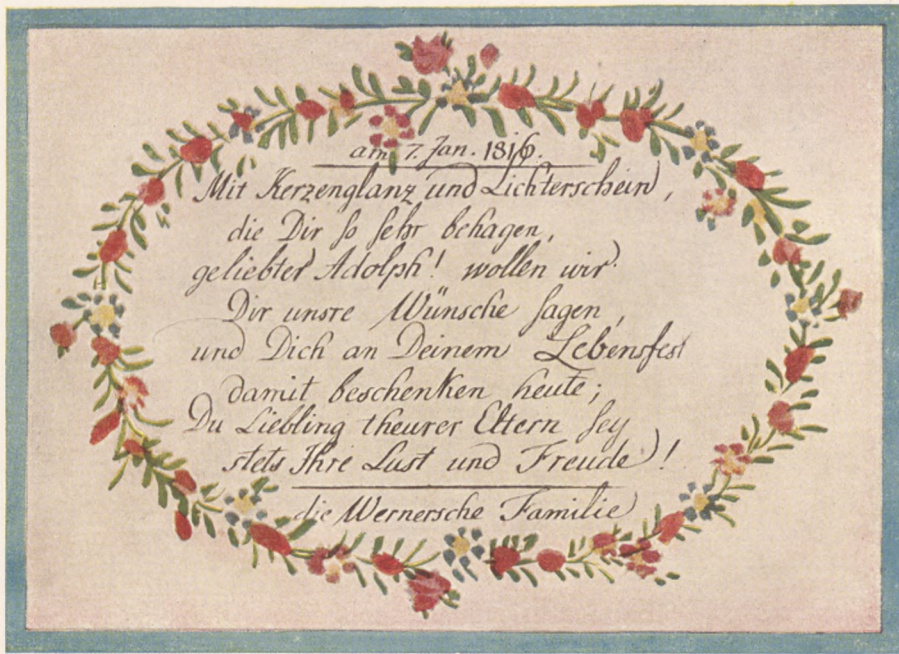 am 7. Jan. 1816.
Mit Kerzenglanz und Lichterschein,
die Dir so sehr behagen,
geliebter Adolph! wollen wir
Dir unsre Wünsche sagen,
und Dich an Deinem Lebensfest
damit beschenken heute;
Du Liebling theurer Eltern sey
stets Ihre Lust und Freude!
die Wernersche Familie